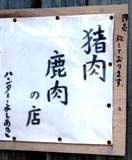 猪肉
鹿肉
の店
ハンターよしあき
致しております。